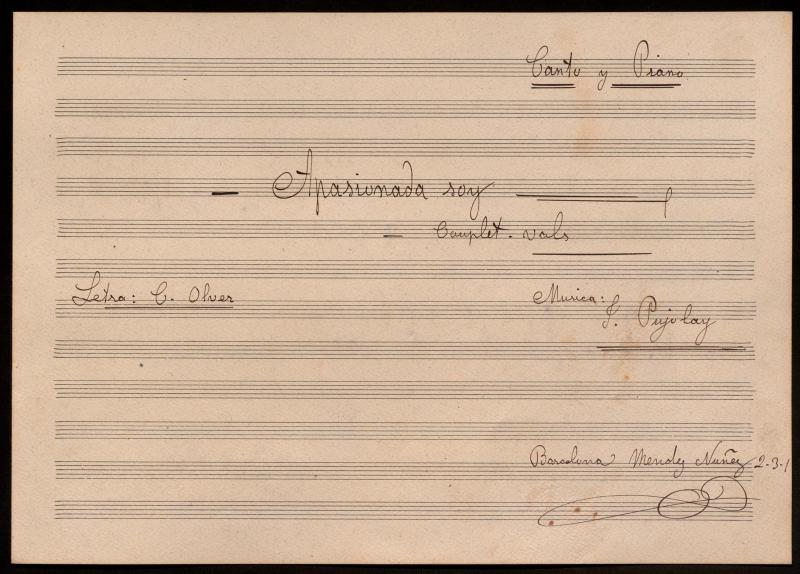 Canto y Piano
Apasionada soy
Couplet. vals
Letra: C. Olver
Musica:
S. Pujolay
Barcelona Mendez Nuñez 2-3-1